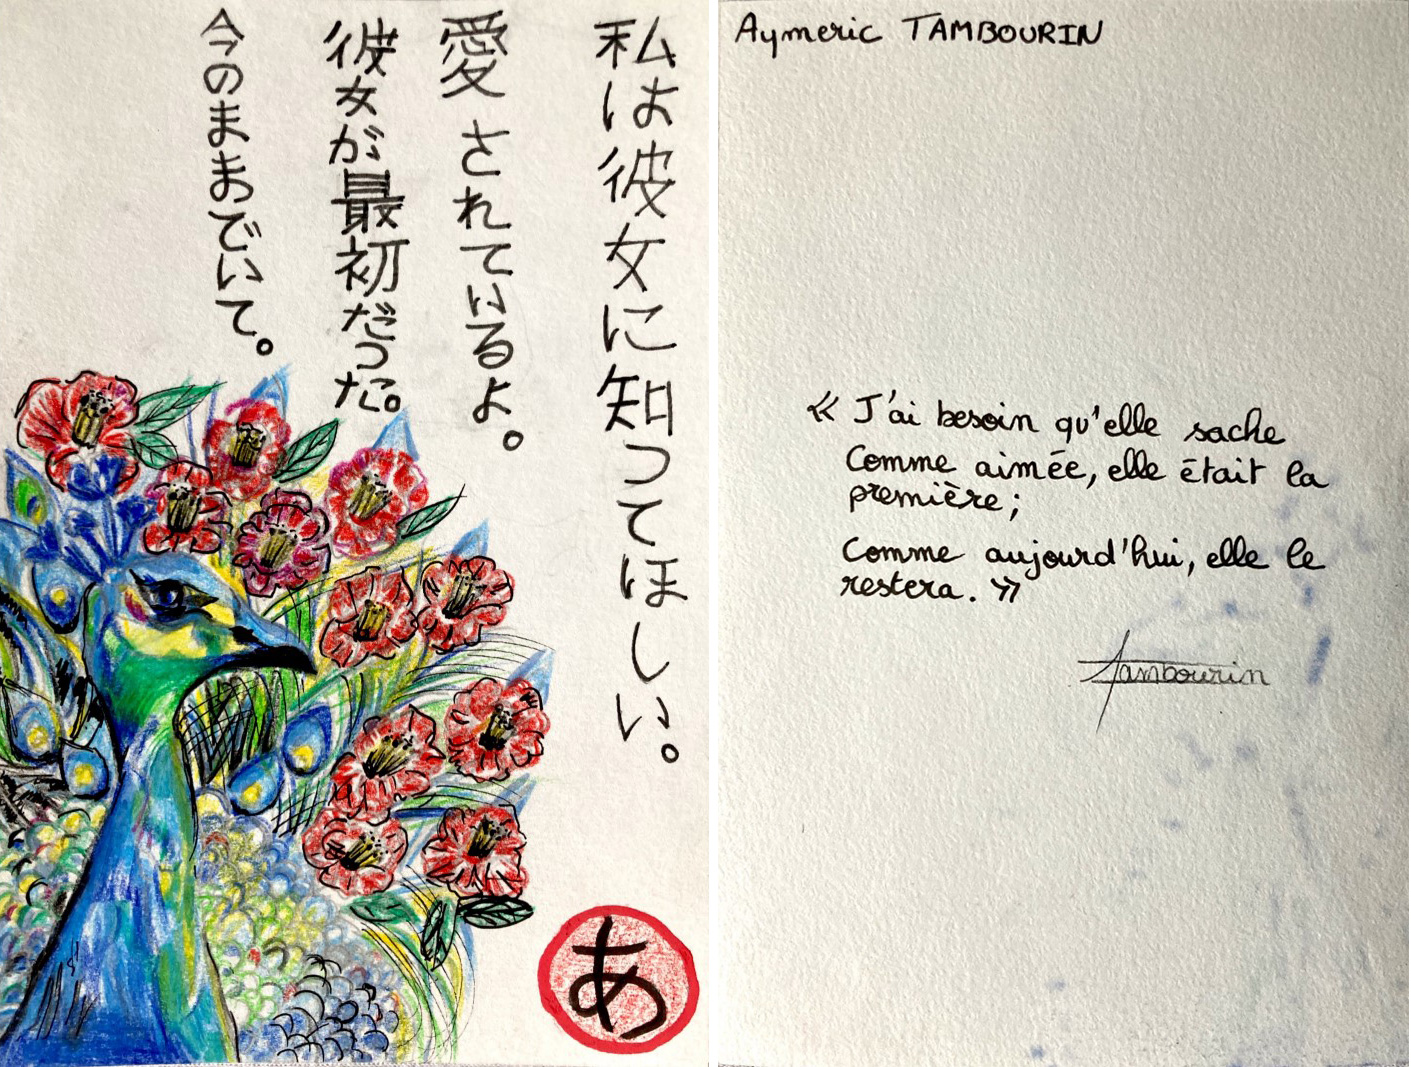 私は彼女に知ってほしい。
愛されているよ。
彼女が最初だった。
今のままでいて。
あ
Aymeric TAMBOURIN
« J'ai besoin qu'elle sache
Comme aimée, elle était la
première;
Comme aujourd'hui, elle le
restera. »
Tambourin